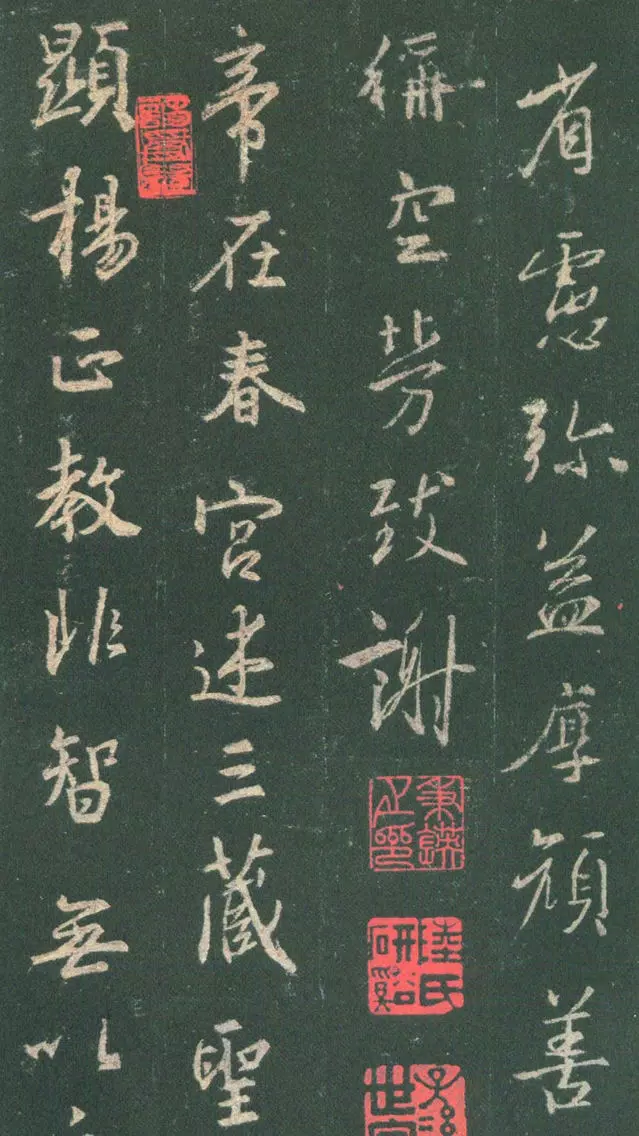 省慮弥益厚顔善
稱空勞致謝
帝在春宮述三藏聖
顯揚正教非智無以